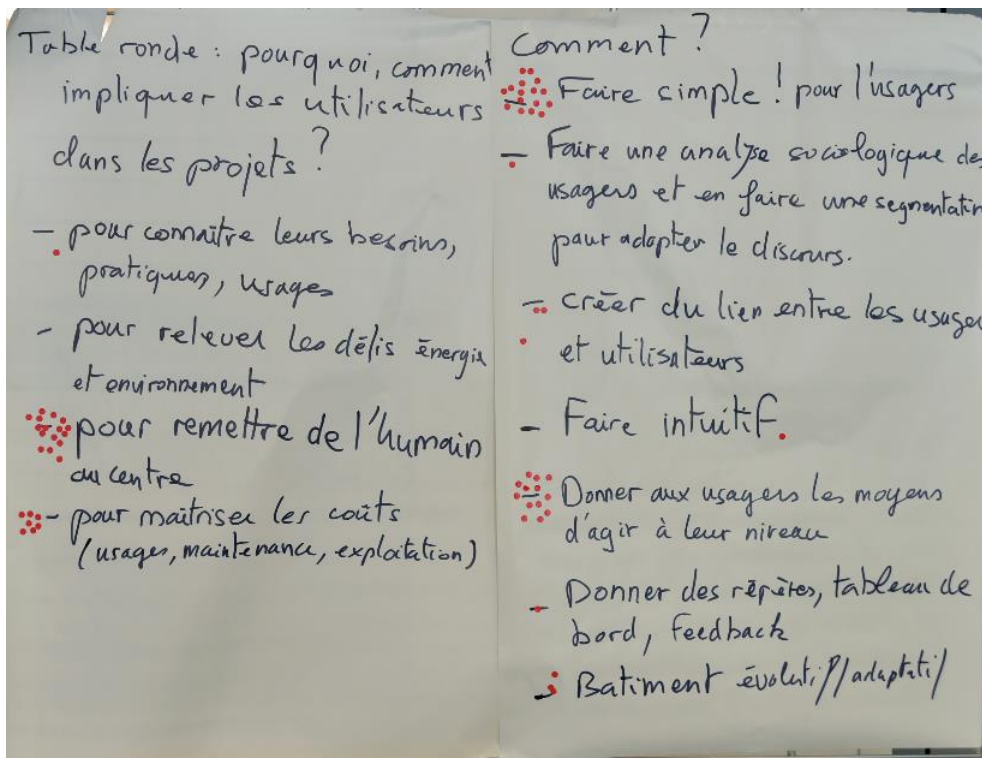 Table ronde : pourquoi, comment
impliquer les utilisateurs
dans les projets ?
- pour connaître leurs besoins,
pratiques, usages
- pour relever les défis énergie
et environnement
- pour remettre de l'humain
au centre
- pour maîtriser les coûts
(usages, maintenance, exploitation)
Comment ?
- Faire simple ! pour l'usagers
- Faire une analyse sociologique des
usagers et en faire une segmentation
pour adapter le discours.
- créer du lien entre les usagers
et utilisateurs
- Faire intuitif.
- Donner aux usagers les moyens
d'agir à leur niveau
- Donner des répères, tableau de
bord, feedback
- Batiment évolutif/adaptatif